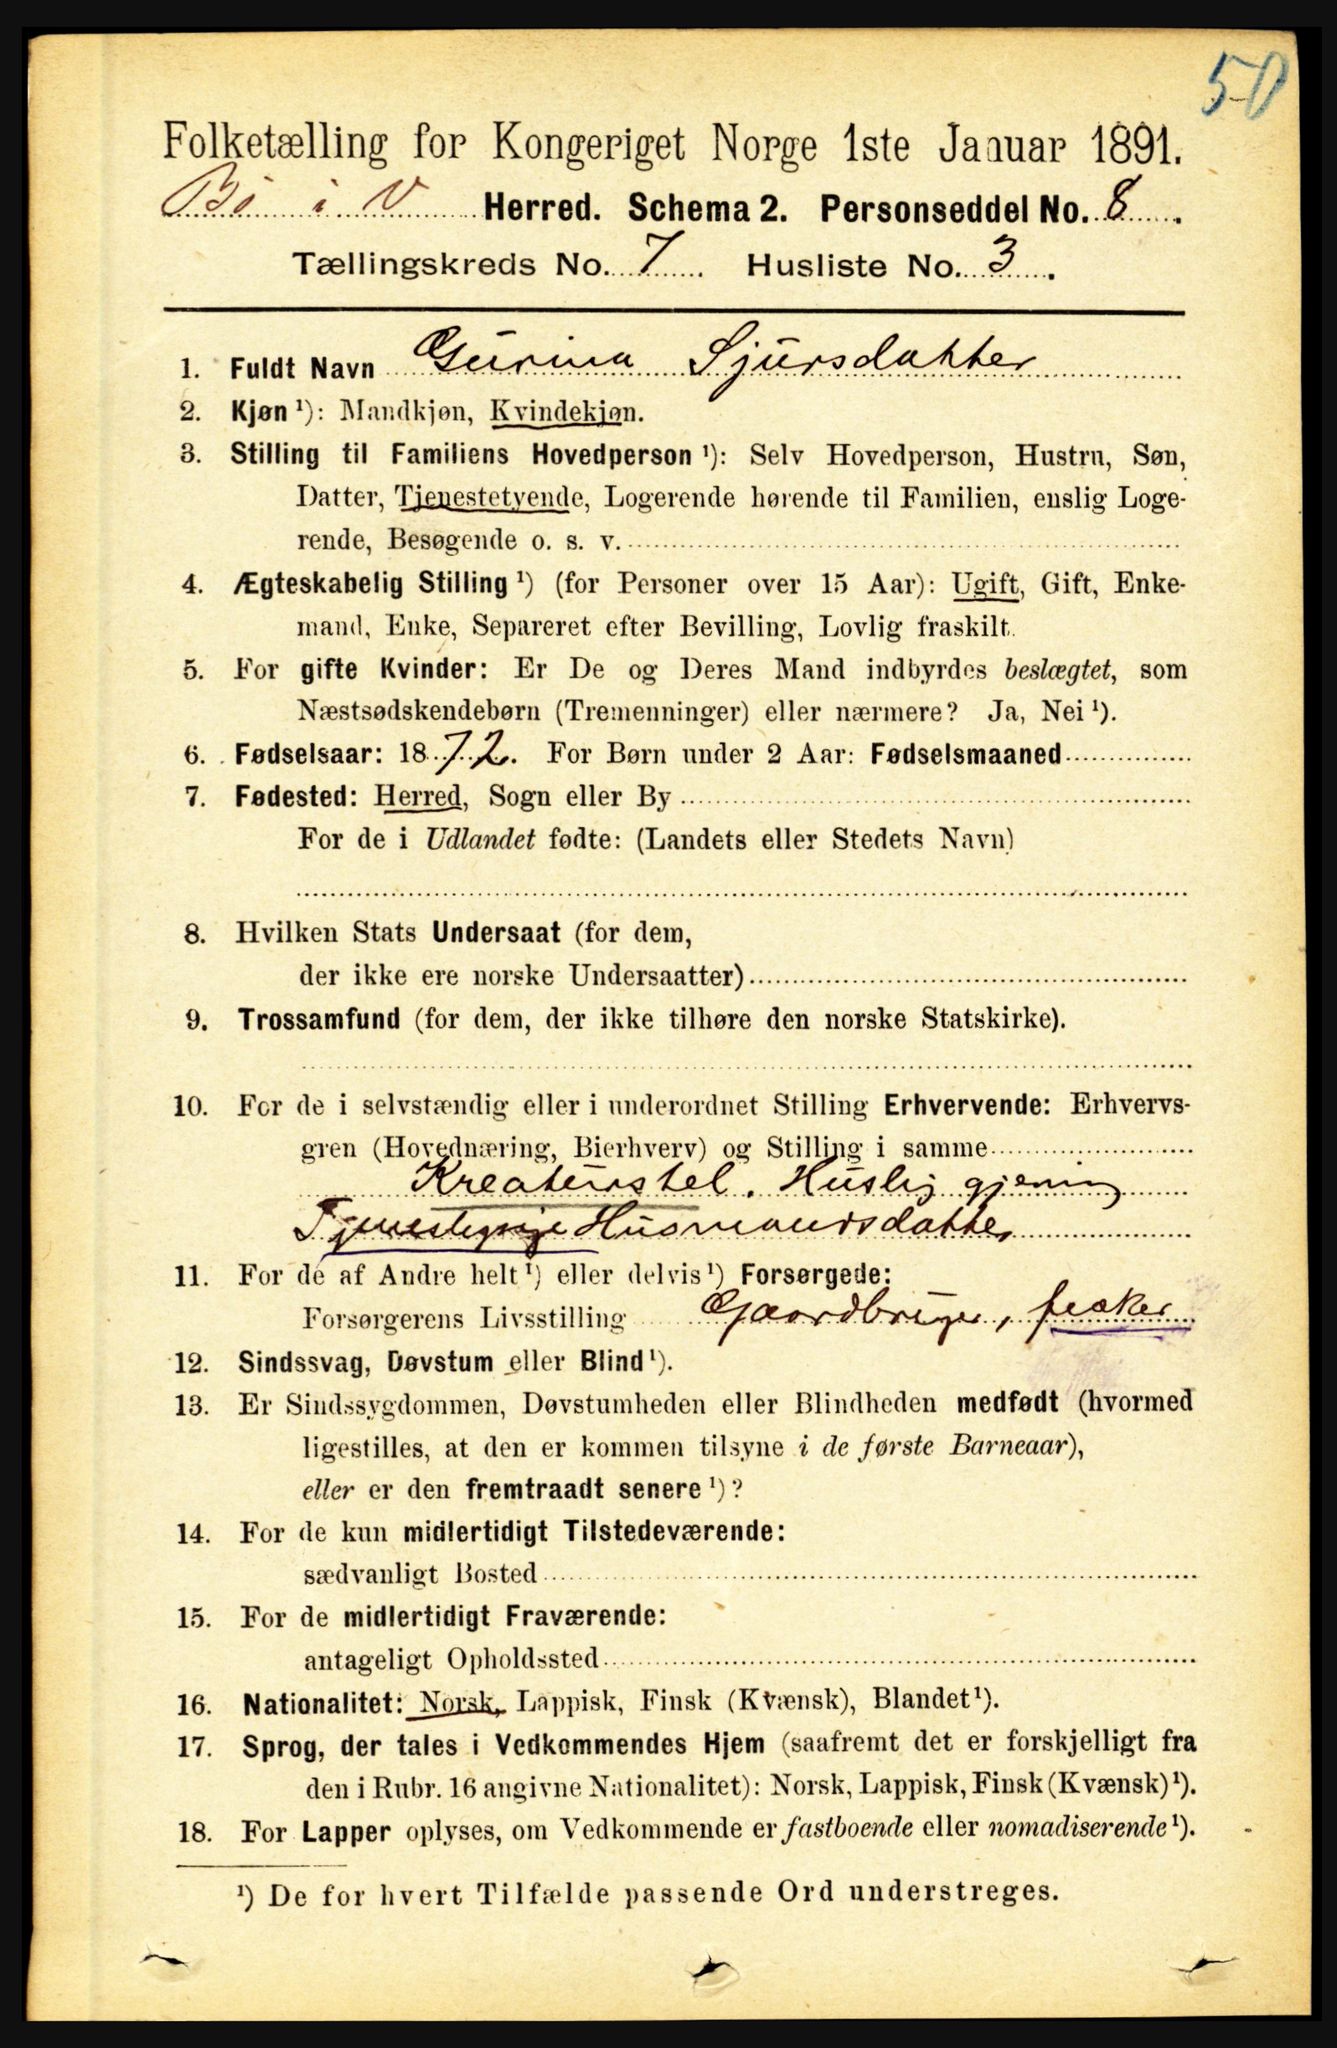 50
Folketælling for Kongeriget Norge 1ste Januar 1891.
Bö i V Herred. Schema 2. Personseddel No. 8.
Tællingskreds No. 7 Husliste No. 3.
1. Fuldt Navn Gurina Sjursdatter
2. Kjøn ¹): Mandkjøn, Kvindekjøn.
3. Stilling til Familiens Hovedperson ¹): Selv Hovedperson, Hustru, Søn,
Datter, Tjenestetyende, Logerende hørende til Familien, enslig Loge-
rende, Besøgende o. s. v.
4. Ægteskabelig Stilling ¹) (for Personer over 15 Aar): Ugift, Gift, Enke-
mand, Enke, Separeret efter Bevilling, Lovlig fraskilt.
5. For gifte Kvinder: Er De og Deres Mand indbyrdes beslægtet, som
Næstsødskendebørn (Tremenninger) eller nærmere? Ja, Nei ¹).
6. Fødselsaar: 1872. For Børn under 2 Aar: Fødselsmaaned
7. Fødested: Herred, Sogn eller By
For de i Udlandet fødte: (Landets eller Stedets Navn)
8. Hvilken Stats Undersaat (for dem,
der ikke ere norske Undersaatter)
9. Trossamfund (for dem, der ikke tilhøre den norske Statskirke).
10. For de i selvstændig eller i underordnet Stilling Erhvervende: Erhvervs-
gren (Hovednæring, Bierhverv) og Stilling i samme
Kreaturstel. Huslig gjerning
Tjenestepige Husmandsdatter
11. For de af Andre helt ¹) eller delvis ¹) Forsørgede:
Forsørgerens Livsstilling Gaardbruger, fisker
12. Sindssvag, Døvstum eller Blind ¹).
13. Er Sindssygdommen, Døvstumheden eller Blindheden medfødt (hvormed
ligestilles, at den er kommen tilsyne i de første Barneaar),
eller er den fremtraadt senere ¹)?
14. For de kun midlertidigt Tilstedeværende:
sædvanligt Bosted
15. For de midlertidigt Fraværende:
antageligt Opholdssted
16. Nationalitet: Norsk, Lappisk, Finsk (Kvænsk), Blandet ¹).
17. Sprog, der tales i Vedkommendes Hjem (saafremt det er forskjelligt fra
den i Rubr. 16 angivne Nationalitet): Norsk, Lappisk, Finsk (Kvænsk) ¹).
18. For Lapper oplyses, om Vedkommende er fastboende eller nomadiserende ¹).
¹) De for hvert Tilfælde passende Ord understreges.